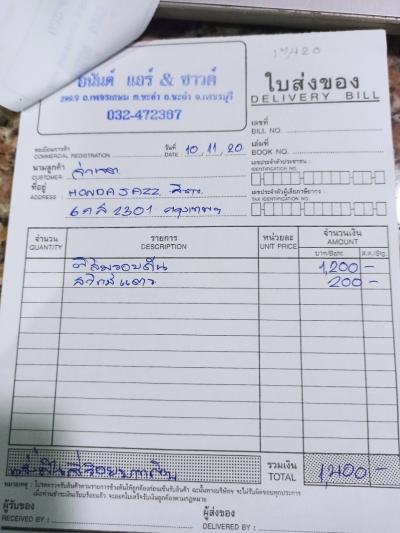 อนันต์ แอร์ & ซาวด์
ถ.เพชรเกษม ต.ชะอำ อ.ชะอำ จ.เพชรบุรี
032-472367
ใบส่งของ
DELIVERY BILL
เลขที่
BILL NO.
ทะเบียนการค้า
COMMERCIAL REGISTRATION
วันที่
DATE : 10, 11, 20
เล่มที่
BOOK NO.
นามลูกค้า
CUSTOMER
เลขประจำตัวประชาชน :
IDENTIFICATION NO.
ที่อยู่
ADDRESS : HONDA JAZZ
เลขประจำตัวผู้เสียภาษีอากร :
TAX IDENTIFICATION NO.
2301 กรุงเทพฯ
จำนวน
QUANTITY
รายการ
DESCRIPTION
หน่วยละ
UNIT PRICE
จำนวนเงิน
AMOUNT
บาท/Baht
ส.ต./Stg.
ฟิล์มรอบคัน 1,200 -
สวิทซ์แตร 200 -
รวมเงิน
TOTAL 1,400 -
หมายเหตุ : โปรดตรวจรับสินค้าตามรายการข้างต้นให้ถูกต้องก่อนเซ็นรับสินค้า ฉะนั้นทางบริษัทฯ จะไม่รับผิดชอบทุกประการ
เมื่อท่านชำระเงินเรียบร้อยแล้ว จะออกใบเสร็จรับเงินให้ถูกต้องตามกฎหมาย
ผู้รับของ
RECEIVED BY :
ผู้ส่งของ
DELIVERED BY :